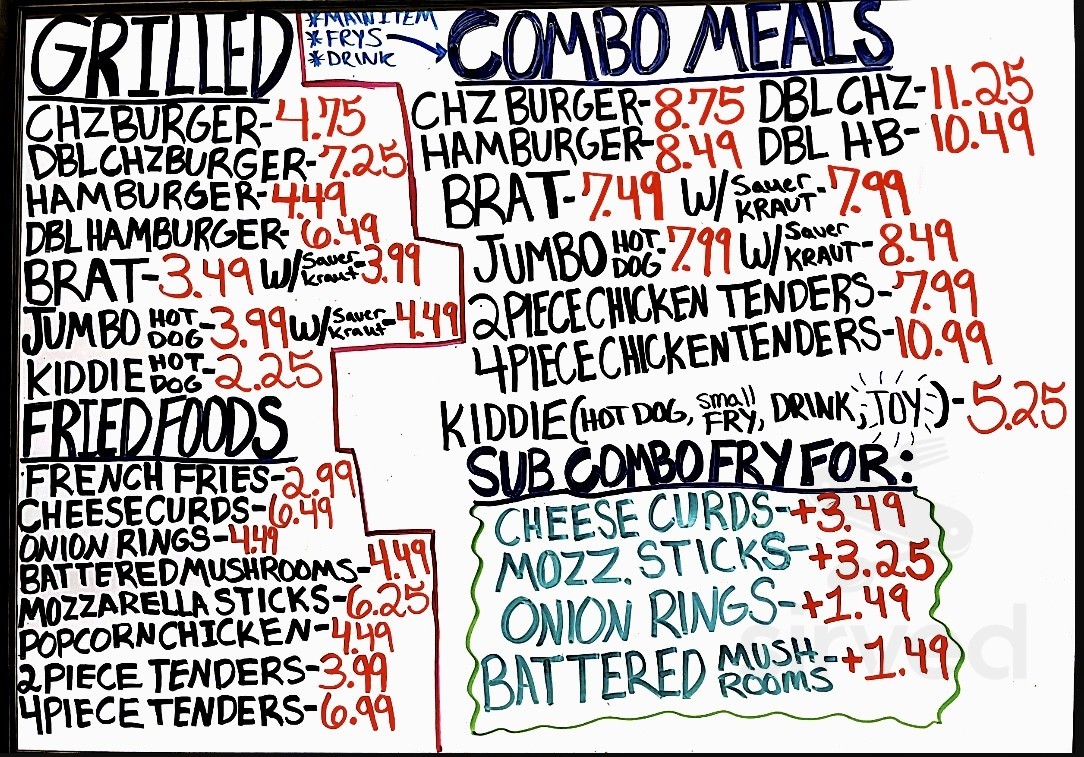 GRILLED
CHZ BURGER-4.75
DBL CHZ BURGER-7.25
HAMBURGER-4.49
DBL HAMBURGER-6.49
BRAT-3.49 W/Sauer kraut-3.99
JUMBO HOT DOG-3.99 W/Sauer Kraut-4.49
KIDDIE HOT DOG-2.25
FRIED FOODS
FRENCH FRIES-2.99
CHEESE CURDS-6.49
ONION RINGS-4.49
BATTERED MUSHROOMS-4.49
MOZZARELLA STICKS-6.25
POPCORN CHICKEN-4.49
2 PIECE TENDERS-3.99
4 PIECE TENDERS-6.99
*MAIN ITEM
*FRYS
*DRINK
COMBO MEALS
CHZ BURGER-8.75 DBL CHZ-11.25
HAMBURGER-8.49 DBL HB-10.49
BRAT-7.49 W/Sauer KRAUT-7.99
JUMBO HOT DOG-7.99 W/Sauer KRAUT-8.49
2 PIECE CHICKEN TENDERS-7.99
4 PIECE CHICKEN TENDERS-10.99
KIDDIE (HOT DOG, small FRY, DRINK, TOY)-5.25
SUB COMBO FRY FOR:
CHEESE CURDS-+3.49
MOZZ. STICKS-+3.25
ONION RINGS-+1.49
BATTERED MUSH-ROOMS-+1.49
sirved